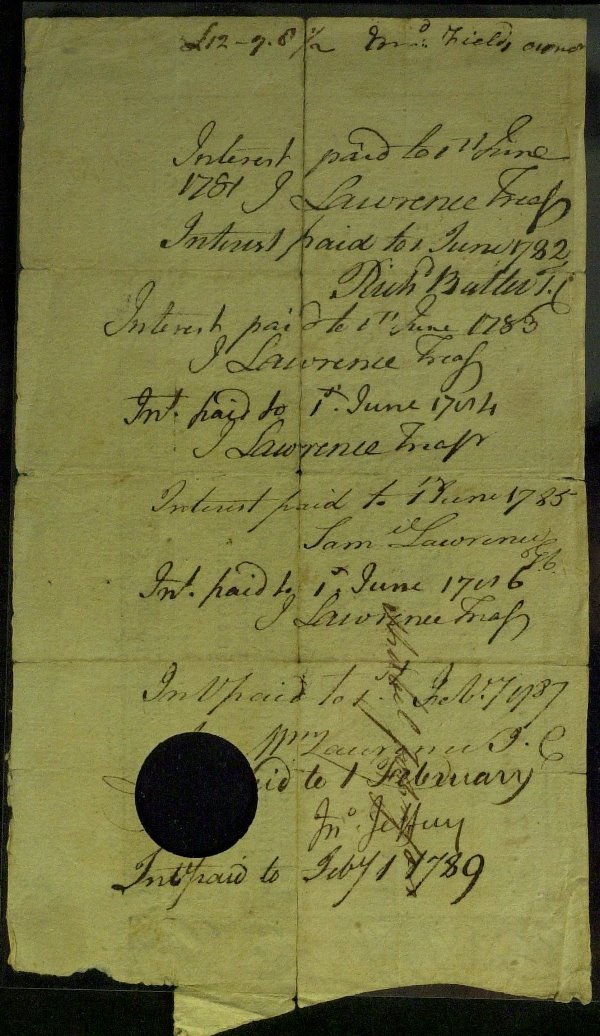 £12 - 9.8 1/2 Fields owner
Interest paid to 1st June
1781 J Lawrence Treasr
Interest paid to 1 June 1782
Richd Butler T.C
Interest paid to 1st June 1783
J Lawrence Treasr
Int. paid to 1st. June 1784
J Lawrence Treasr
Interest paid to 1st June 1785
Samel Lawrence
Int. paid to 1st June 1786
J Lawrence Treasr
Int paid to 1st Feby. 1787
Wm Lawrence
aid to 1 February
Jno. Jeffery
Int paid to Feby 1 1789